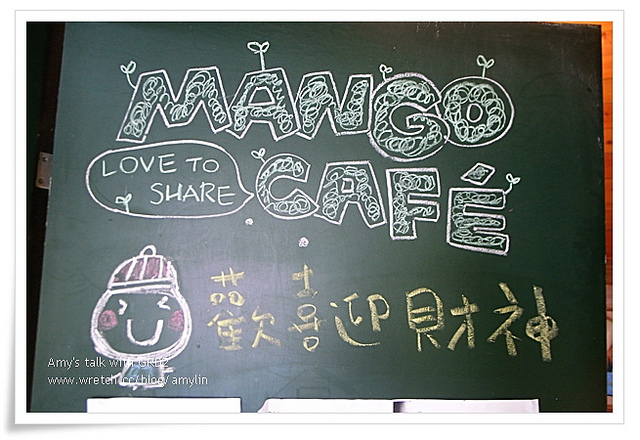 MANGO
LOVE TO
SHARE
CAFÉ
歡喜迎財神
Amy's talk with
www.wretch.cc/blog/amylin